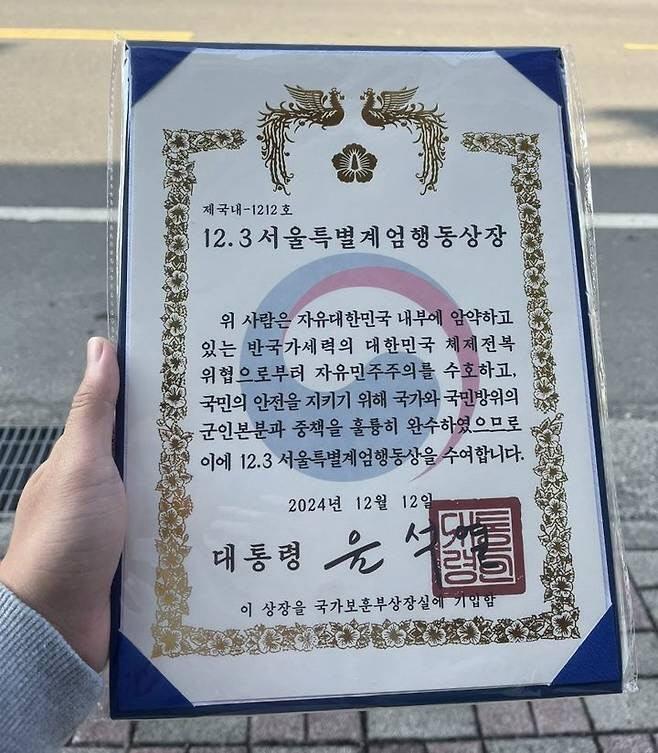 제국내-1212호
12.3 서울특별계엄행동상장
위 사람은 자유대한민국 내부에 암약하고
있는 반국가세력의 대한민국 체제전복
위협으로부터 자유민주주의를 수호하고,
국민의 안전을 지키기 위해 국가와 국민방위의
군인본분과 중책을 훌륭히 완수하였으므로
이에 12.3 서울특별계엄행동상을 수여합니다.
2024년 12월 12일
대통령 윤석열
대통령의인
이 상장을 국가보훈부상장실에 기입함